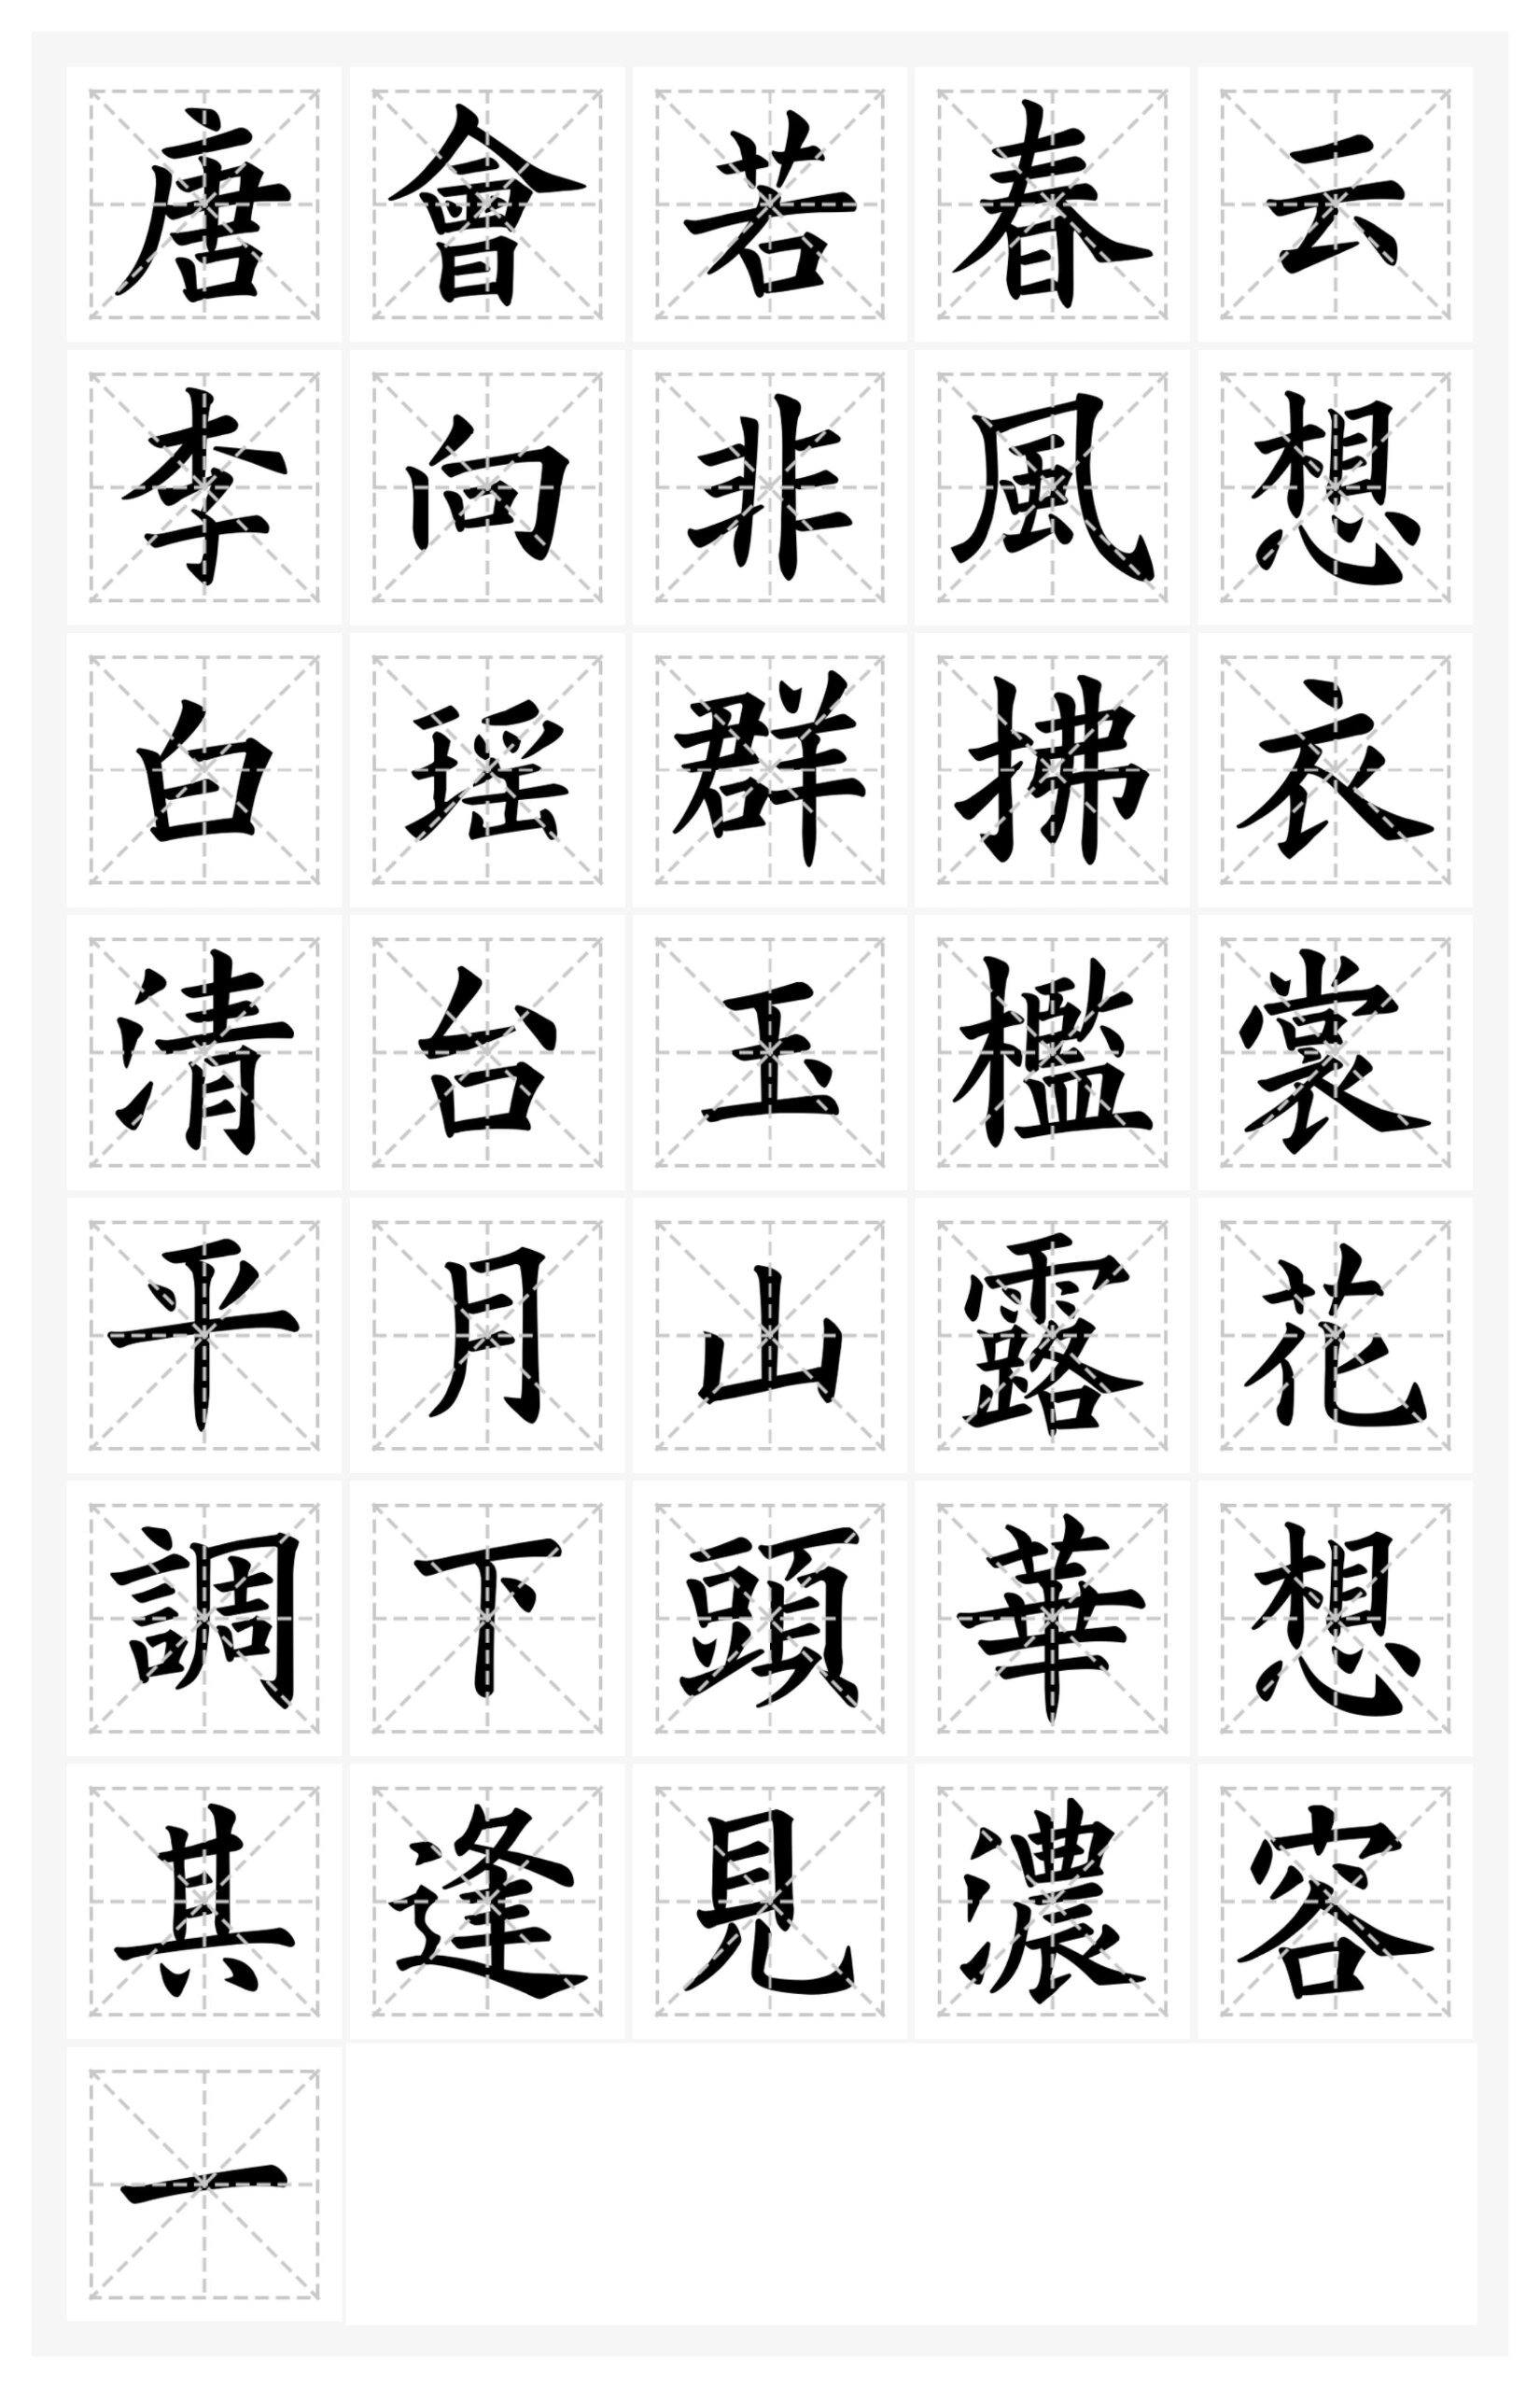 云想衣裳花想容
春風拂檻露華濃
若非群玉山頭見
會向瑶台月下逢
唐李白清平調其一